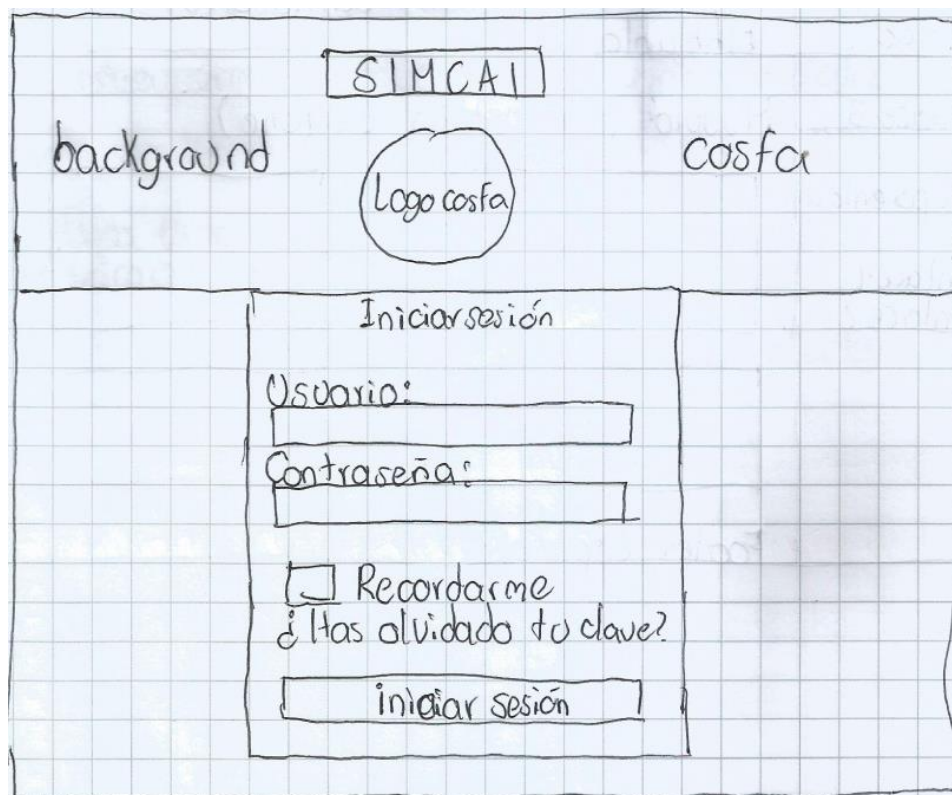 SIMCAI
background
Logo cosfa
cosfa
Iniciar sesión
Usuario:
Contraseña:
Recordarme
¿Has olvidado tu clave?
iniciar sesión